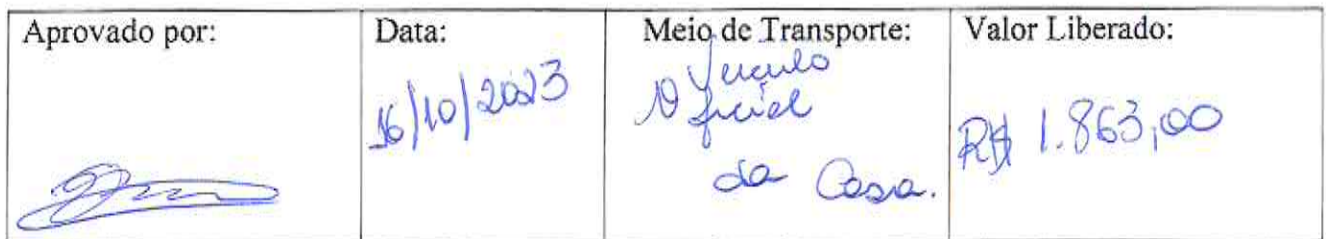 Aprovado por:
Data:
16/10/2023
Meio de Transporte:
Veiculo
Oficial
da Casa.
Valor Liberado:
R$ 1.863,00